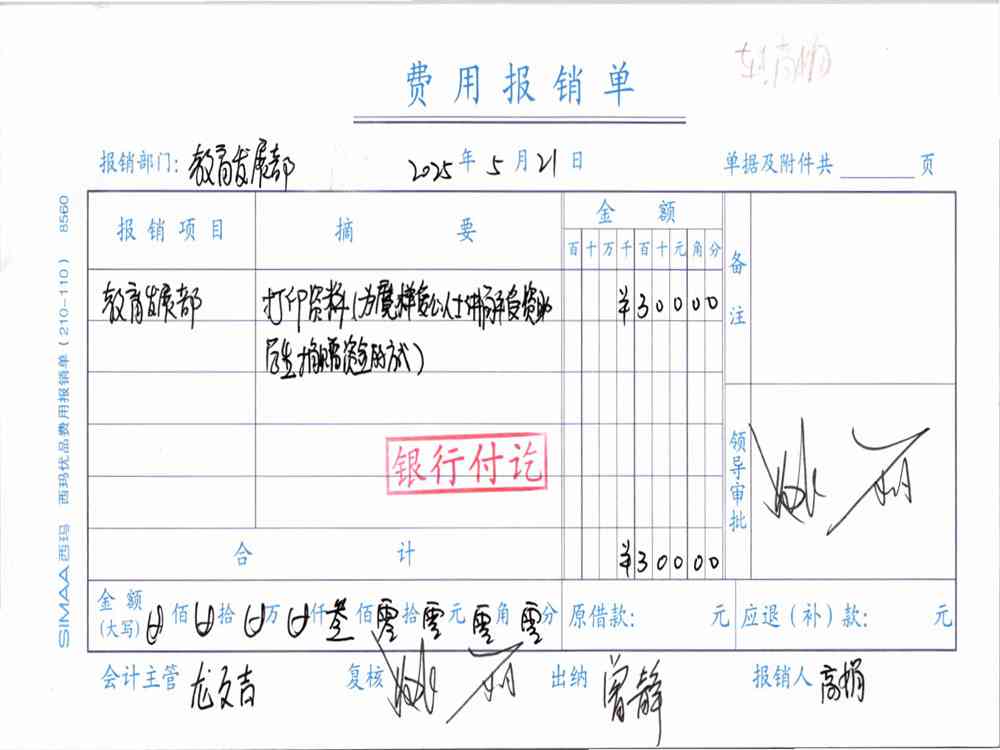 费用报销单
报销部门: 教育发展部 2025年5月21日 单据及附件共 页
报销项目 摘要 金额 备注
百十万千百十元角分
教育发展部 打印资料(为 ¥30000
资金的方式)
银行付讫
领导审批
合计 ¥30000
金额(大写) 佰 拾 万 仟叁佰零拾零元零角零分 原借款: 元 应退(补)款: 元
会计主管 龙文吉 复核 出纳 曾静 报销人 高娟
SIMAA西玛 西玛优品费用报销单(210-110) 8560